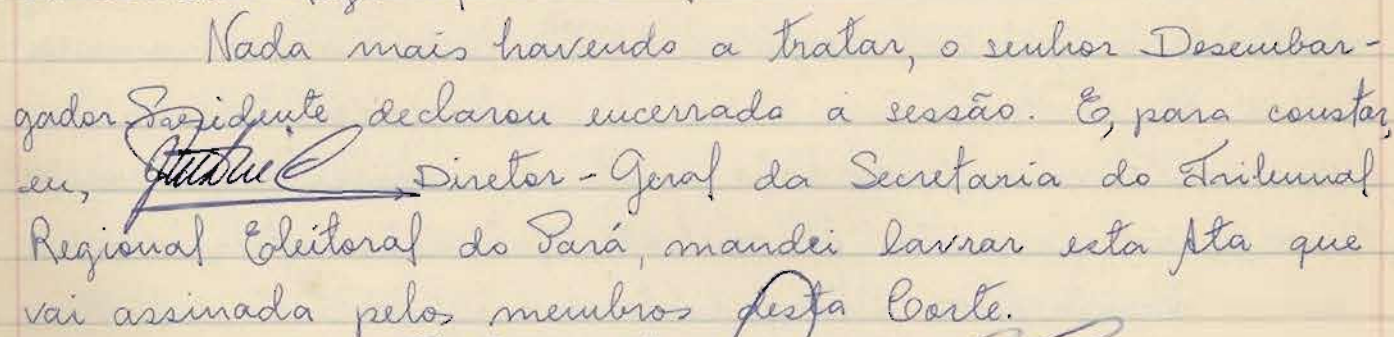 Nada mais havendo a tratar, o senhor Desembar-
gador Presidente declarou encerrada a sessão. E, para constar,
eu, Diretor-Geral da Secretaria do Tribunal
Regional Eleitoral do Pará, mandei lavrar esta Ata que
vai assinada pelos membros desta Corte.